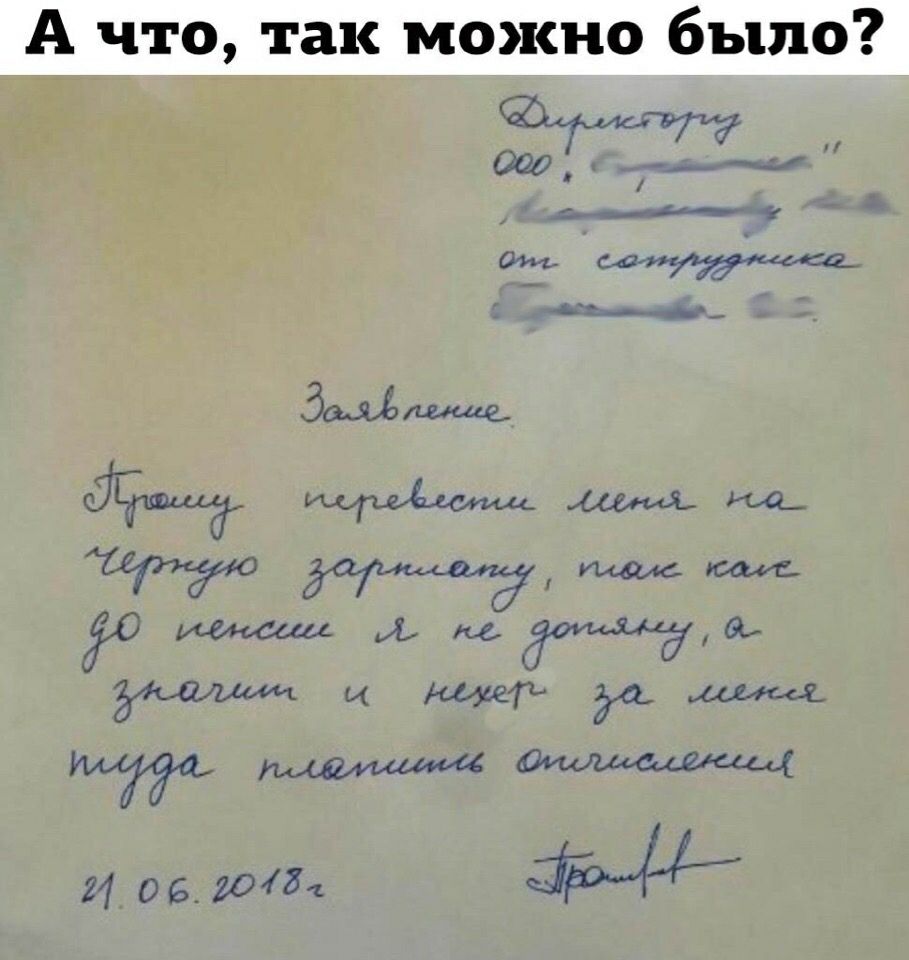 А что, так можно было?
Директору
ООО „ "
от сотрудника
Заявление.
Прошу перевести меня на
черную зарплату, так как
до пенсии я не дотяну, а
значит и нехер за меня
туда платить отчисления
21.06.2018г